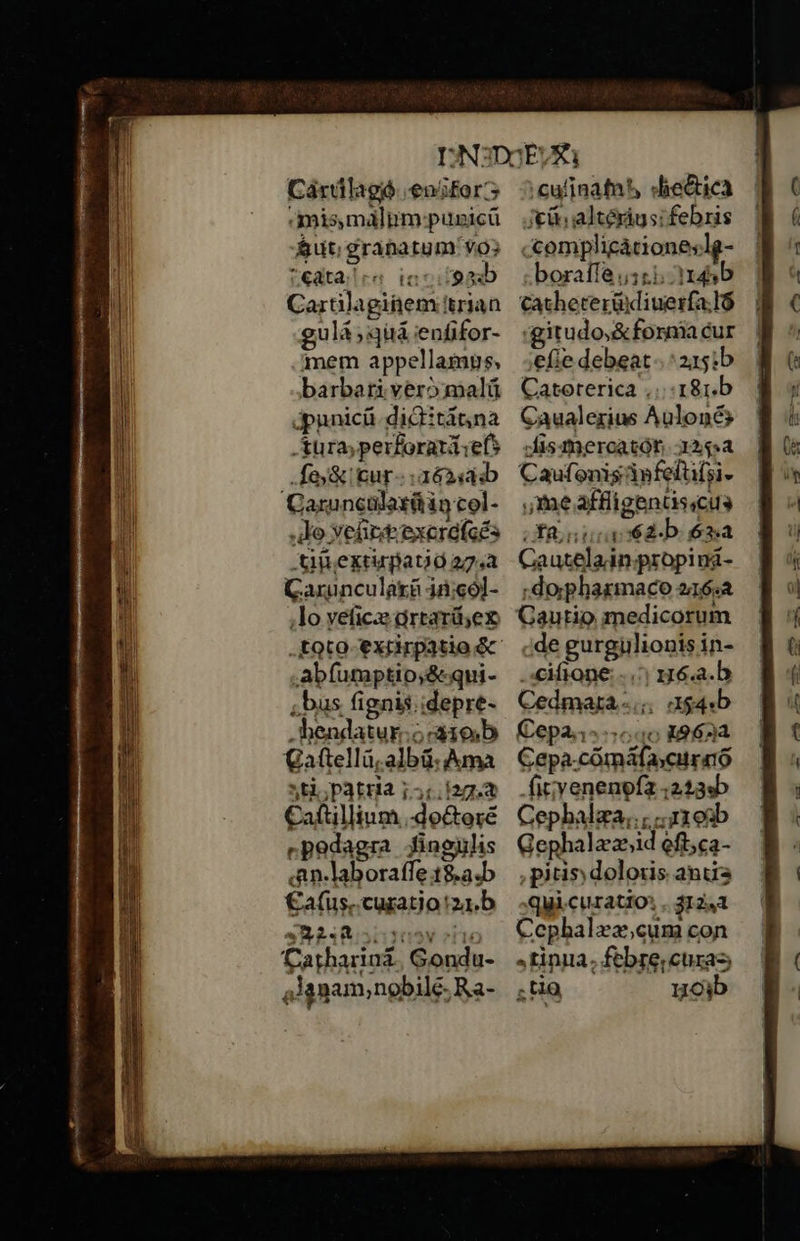 INDEX
Cártilagó ensifor-
mis, málum punicū
aut granatum vo-
cata 93.b
Cartilaginem trian
gulá, quá ensifor-
mem appellamus,
barbari vero malū
punicū dictitát, na
tura, perforatá, es-
se, & cur 162.a.b
Caruncularū in col-
lo vesicæ excrescés
tiū extirpatio 27.a
Caruncularū in col-
lo vesicæ ortarū, ex
toto extirpatio &
absumptio, & qui-
bus signis depre-
hendatur 210.b
Castellū, albū, Ama
ti, patria 27.a
Castillium doctoré
podagra singulis
an. laborasse 18.a.b
Casus curatio 21.b
22.a
Catharinā Gondu-
lanam, nobilé Ra-
cusinam, hectica
cū alterius febris
complicatione, la-
borasse 114.b
catheterū diuersa, lō
gitudo, & forma cur
esse debeat 215.b
Catoterica 181.b
Caualerius Auloné-
sis mercator 125.a
Causonis infestissi-
me affligentis, cu-
ra 62.b. 63.a
Cautela in propinā-
do, pharmaco 216.a
Cautio medicorum
de gurgulionis in-
cisione 116.a.b
Cedmata 154.b
Cepa 196.a
Cepa cómása, cur nō
sit, venenosa 213.b
Cephalæa 110.b
Cephalææ, id est, ca-
pitis doloris antiq
qui curatio 312.a
Cephalææ, cum con
tinua febre, cura-
tio 110.b